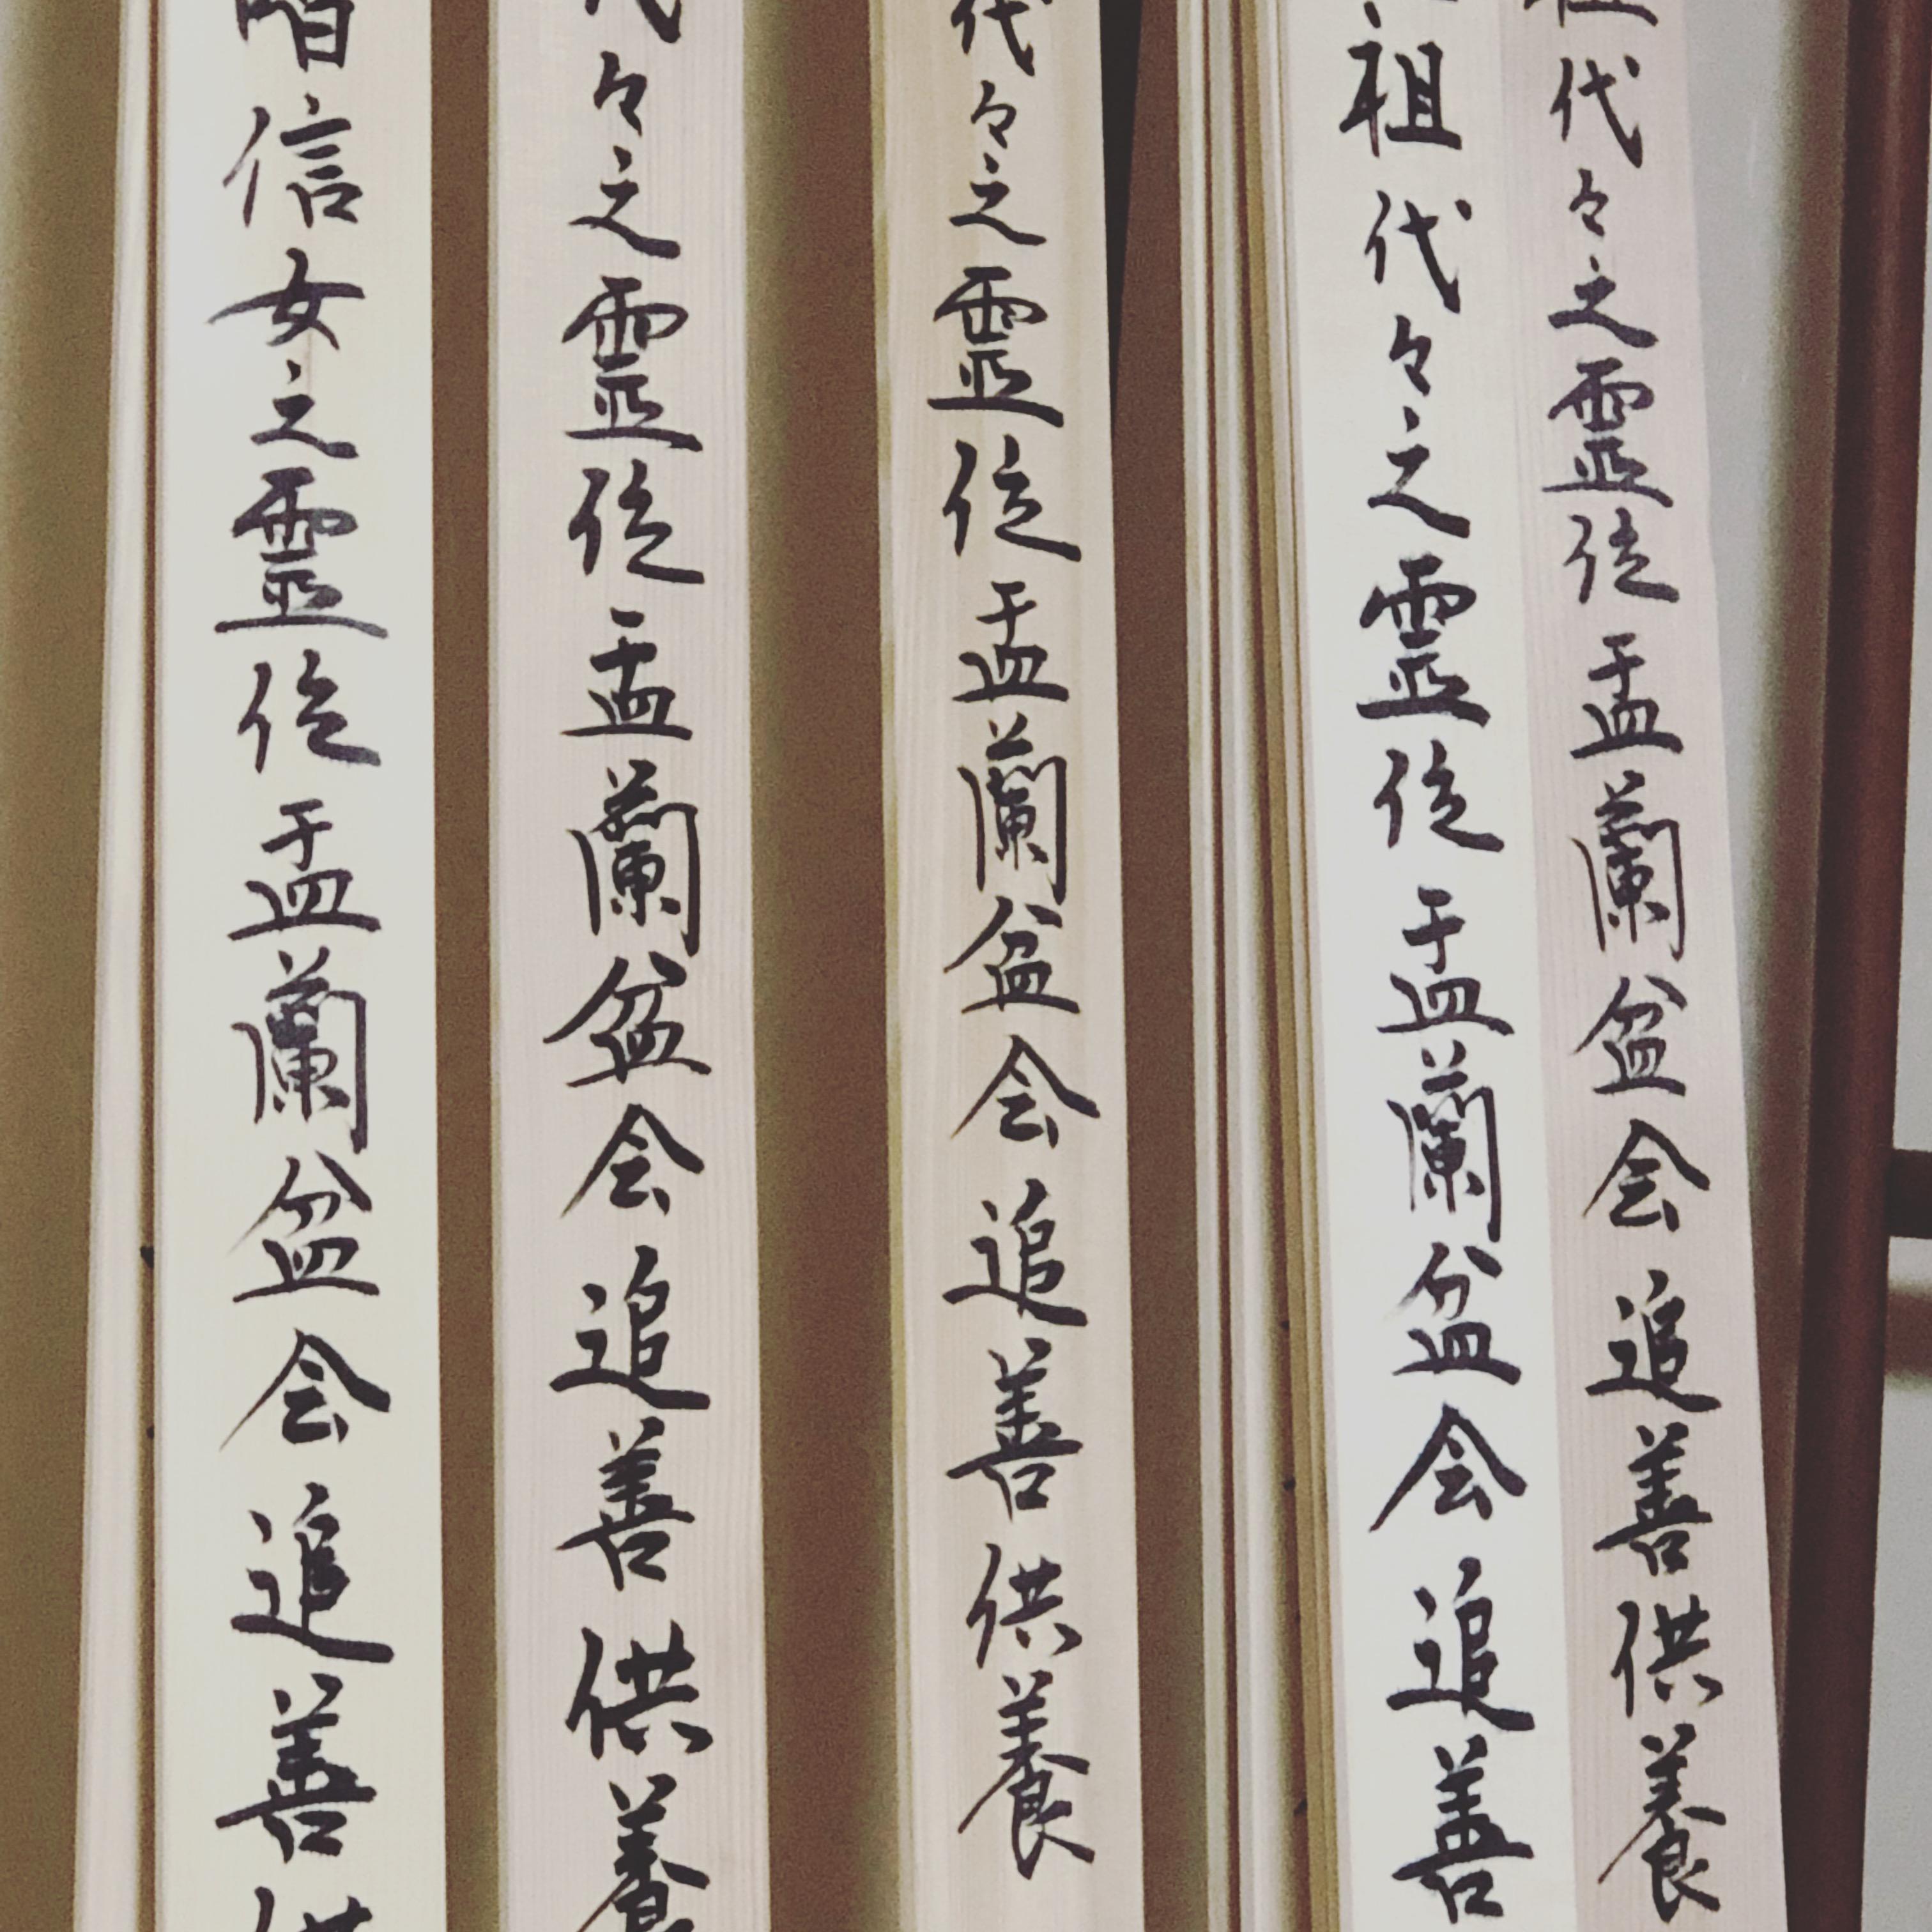 祖代々之霊位盂蘭盆会追善供養
祖代々之霊位盂蘭盆会追善
代々之霊位盂蘭盆会追善供養
代々之霊位盂蘭盆会追善供養
信女之霊位盂蘭盆会追善供